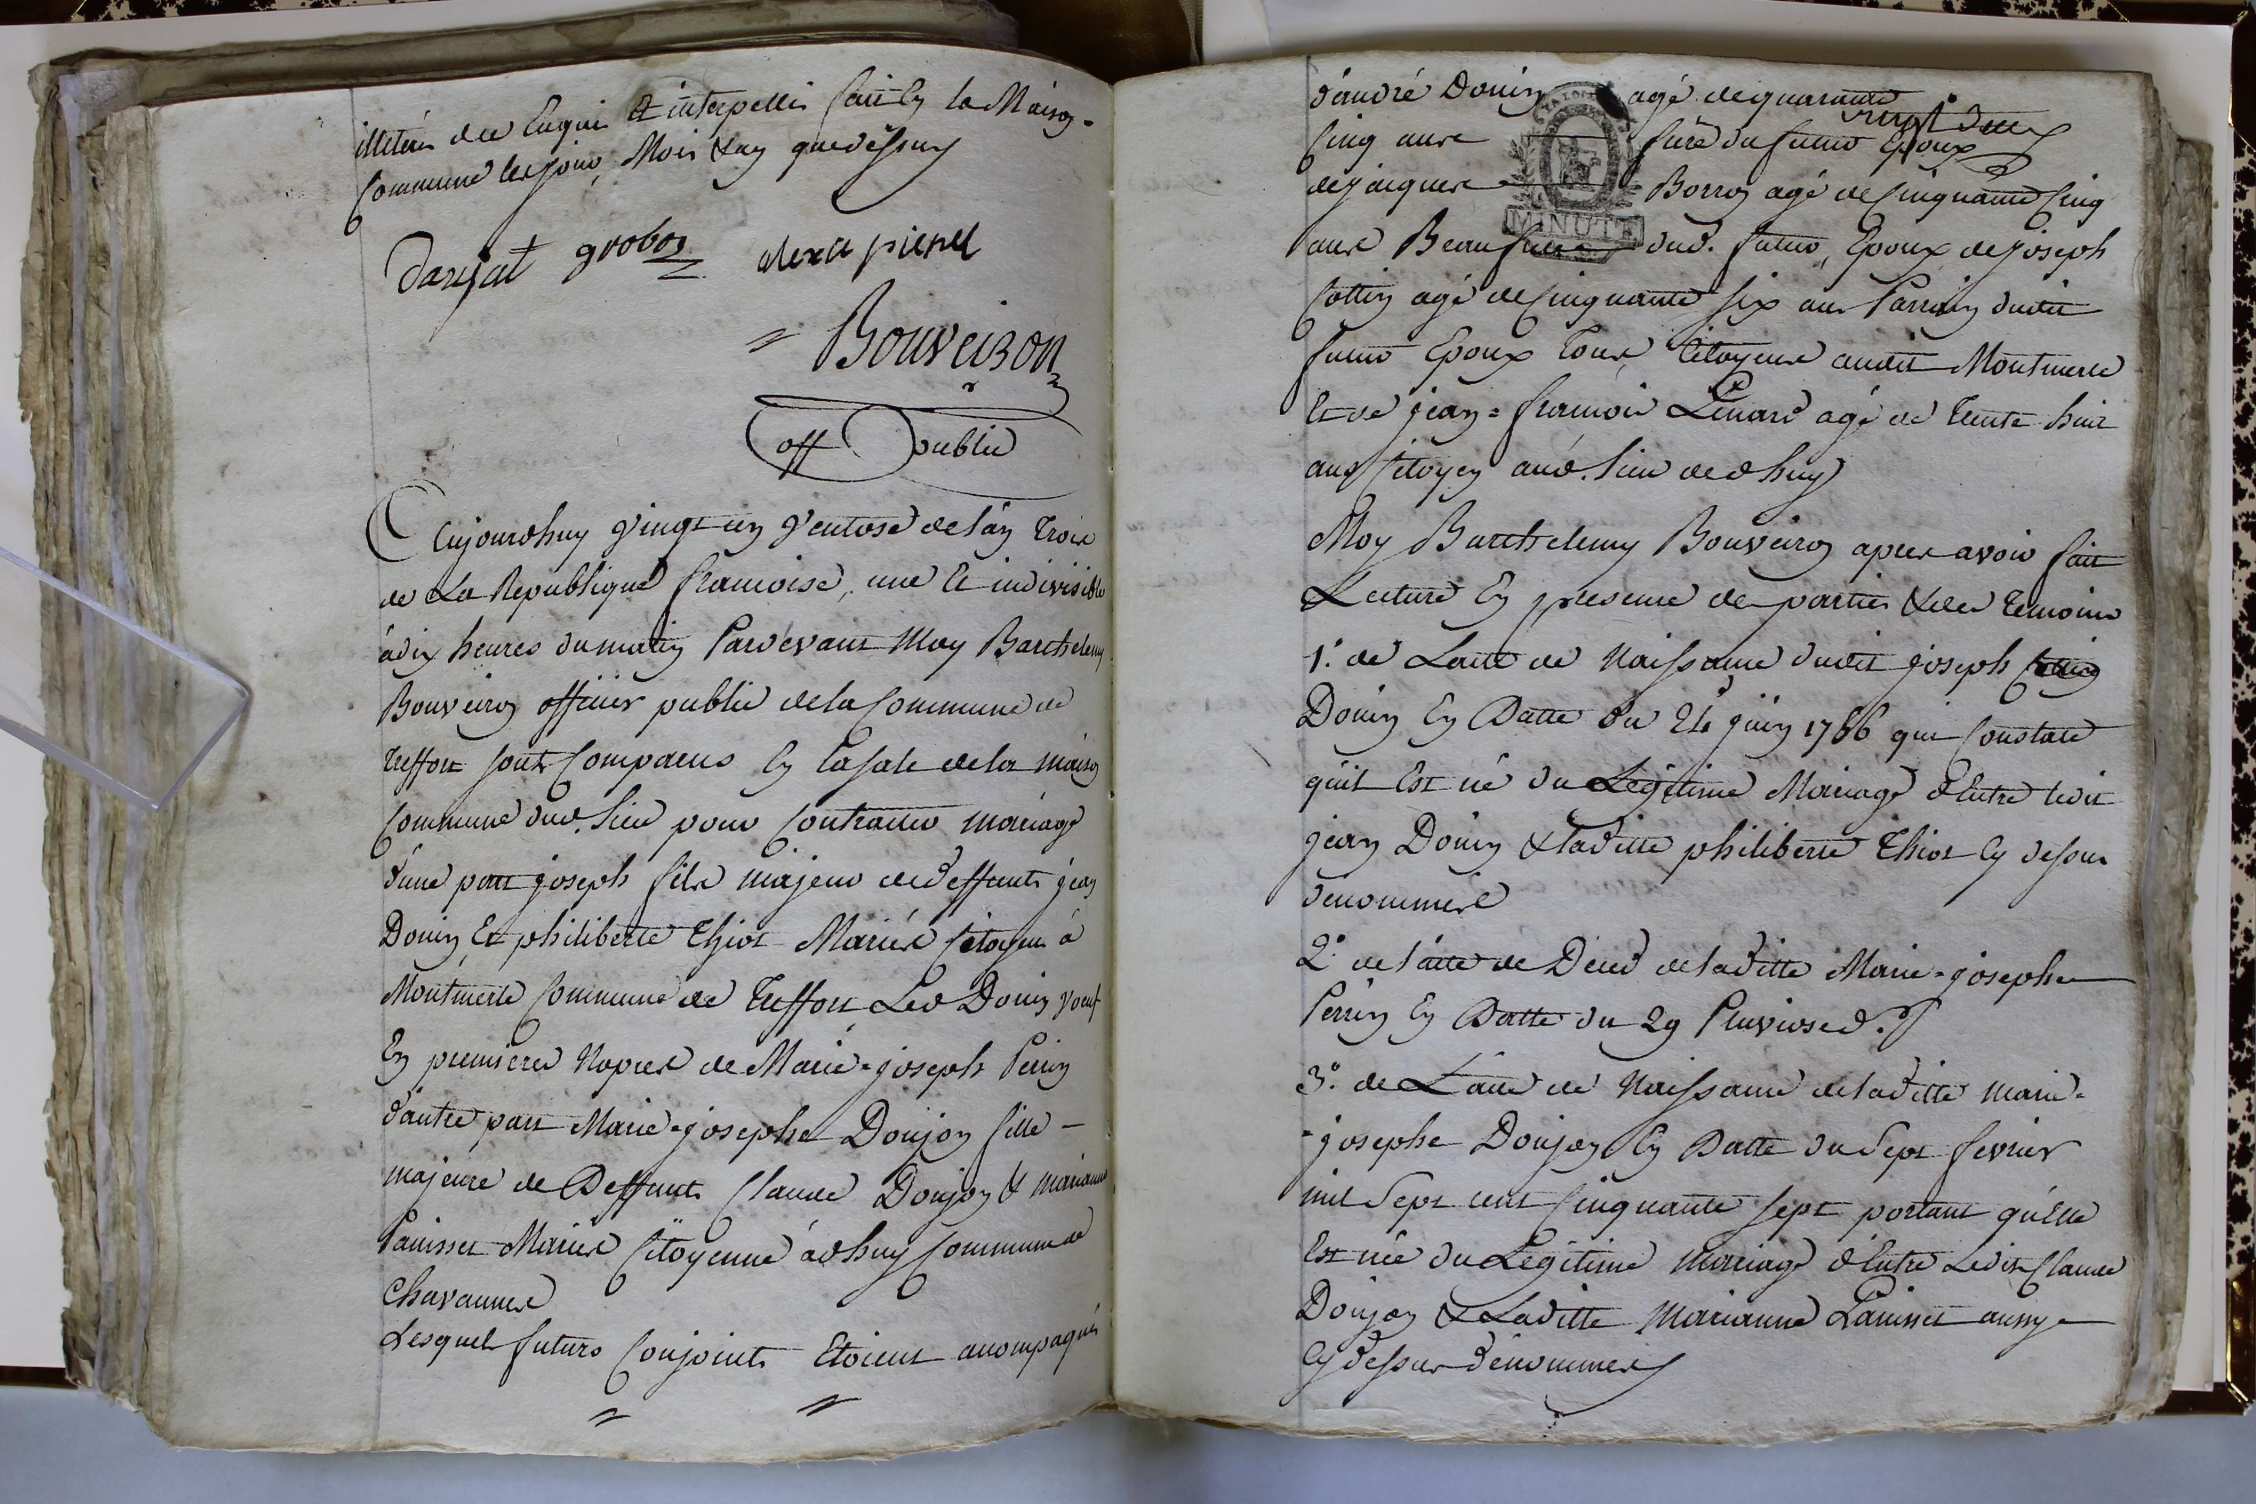 illiterés de ce Enquis & interpellés fait En la Maison
Commune les jour, Mois & an que dessus
darsiat grobon alexis pictet
Bouveiron
off public
Aujourdhuy vingt un ventose de l'an trois
de La Republique francoise, une Et indivisible
à dix heures du matin Pardevant Moy Barthelemy
Bouveiron officier public de la Commune de
Treffort sont Comparus En la sale de la maison
Commune dud. lieu pour Contracter mariage
d'une part joseph fils majeur de deffunts jean
Douin Et philiberte Thiot Mariés Citoyen à
Montmerle Commune de Treffort Led Douin veuf
En premieres Nopces de Marie-joseph Perrin
d'autre part Marie-josephe Donjon fille
majeure de Deffunts Claude Donjon & Marianne
Panisset Mariés Citoyenne à dhuys Commune de
Chavannes
Lesquels futurs Conjoints Etoient accompagnés
d'andré Douin agé de quarante
vingt deux
Cinq ans frère du futur Epoux
de jacques Borron agé de Cinquante Cinq
ans Beaufrere dud. futur Epoux de joseph
Cottin agé de Cinquante six ans Parrain dudit
futur Epoux tous Citoyens audit Montmerle
Et de jean-francois Lienard agé de trente huit
ans Citoyen aud. lieu de dhuys
Moy Barthelemy Bouveiron apres avoir fait
Lecture En presence des parties & des temoins
1.° de Lacte de Naissance dudit joseph
Douin En Datte du 24 juin 1756 qui Constate
qu'il Est né du Legitime Mariage d'Entre ledit
jean Douin & laditte philiberte Thiot Cy dessus
denommés
2.° de l'acte de Décès de laditte Marie-josephe
Perrin En Datte du 29 Pluviose d.r
3.° de L'acte de Naissance de laditte Marie-
-josephe Donjon En Datte du Sept fevrier
mil Sept cent Cinquante sept portant qu'Elle
Est née du Legitime mariage d'Entre Ledit Claude
Donjon & Laditte Marianne Panisset aussy
Cy dessus dénommés
MINUTE